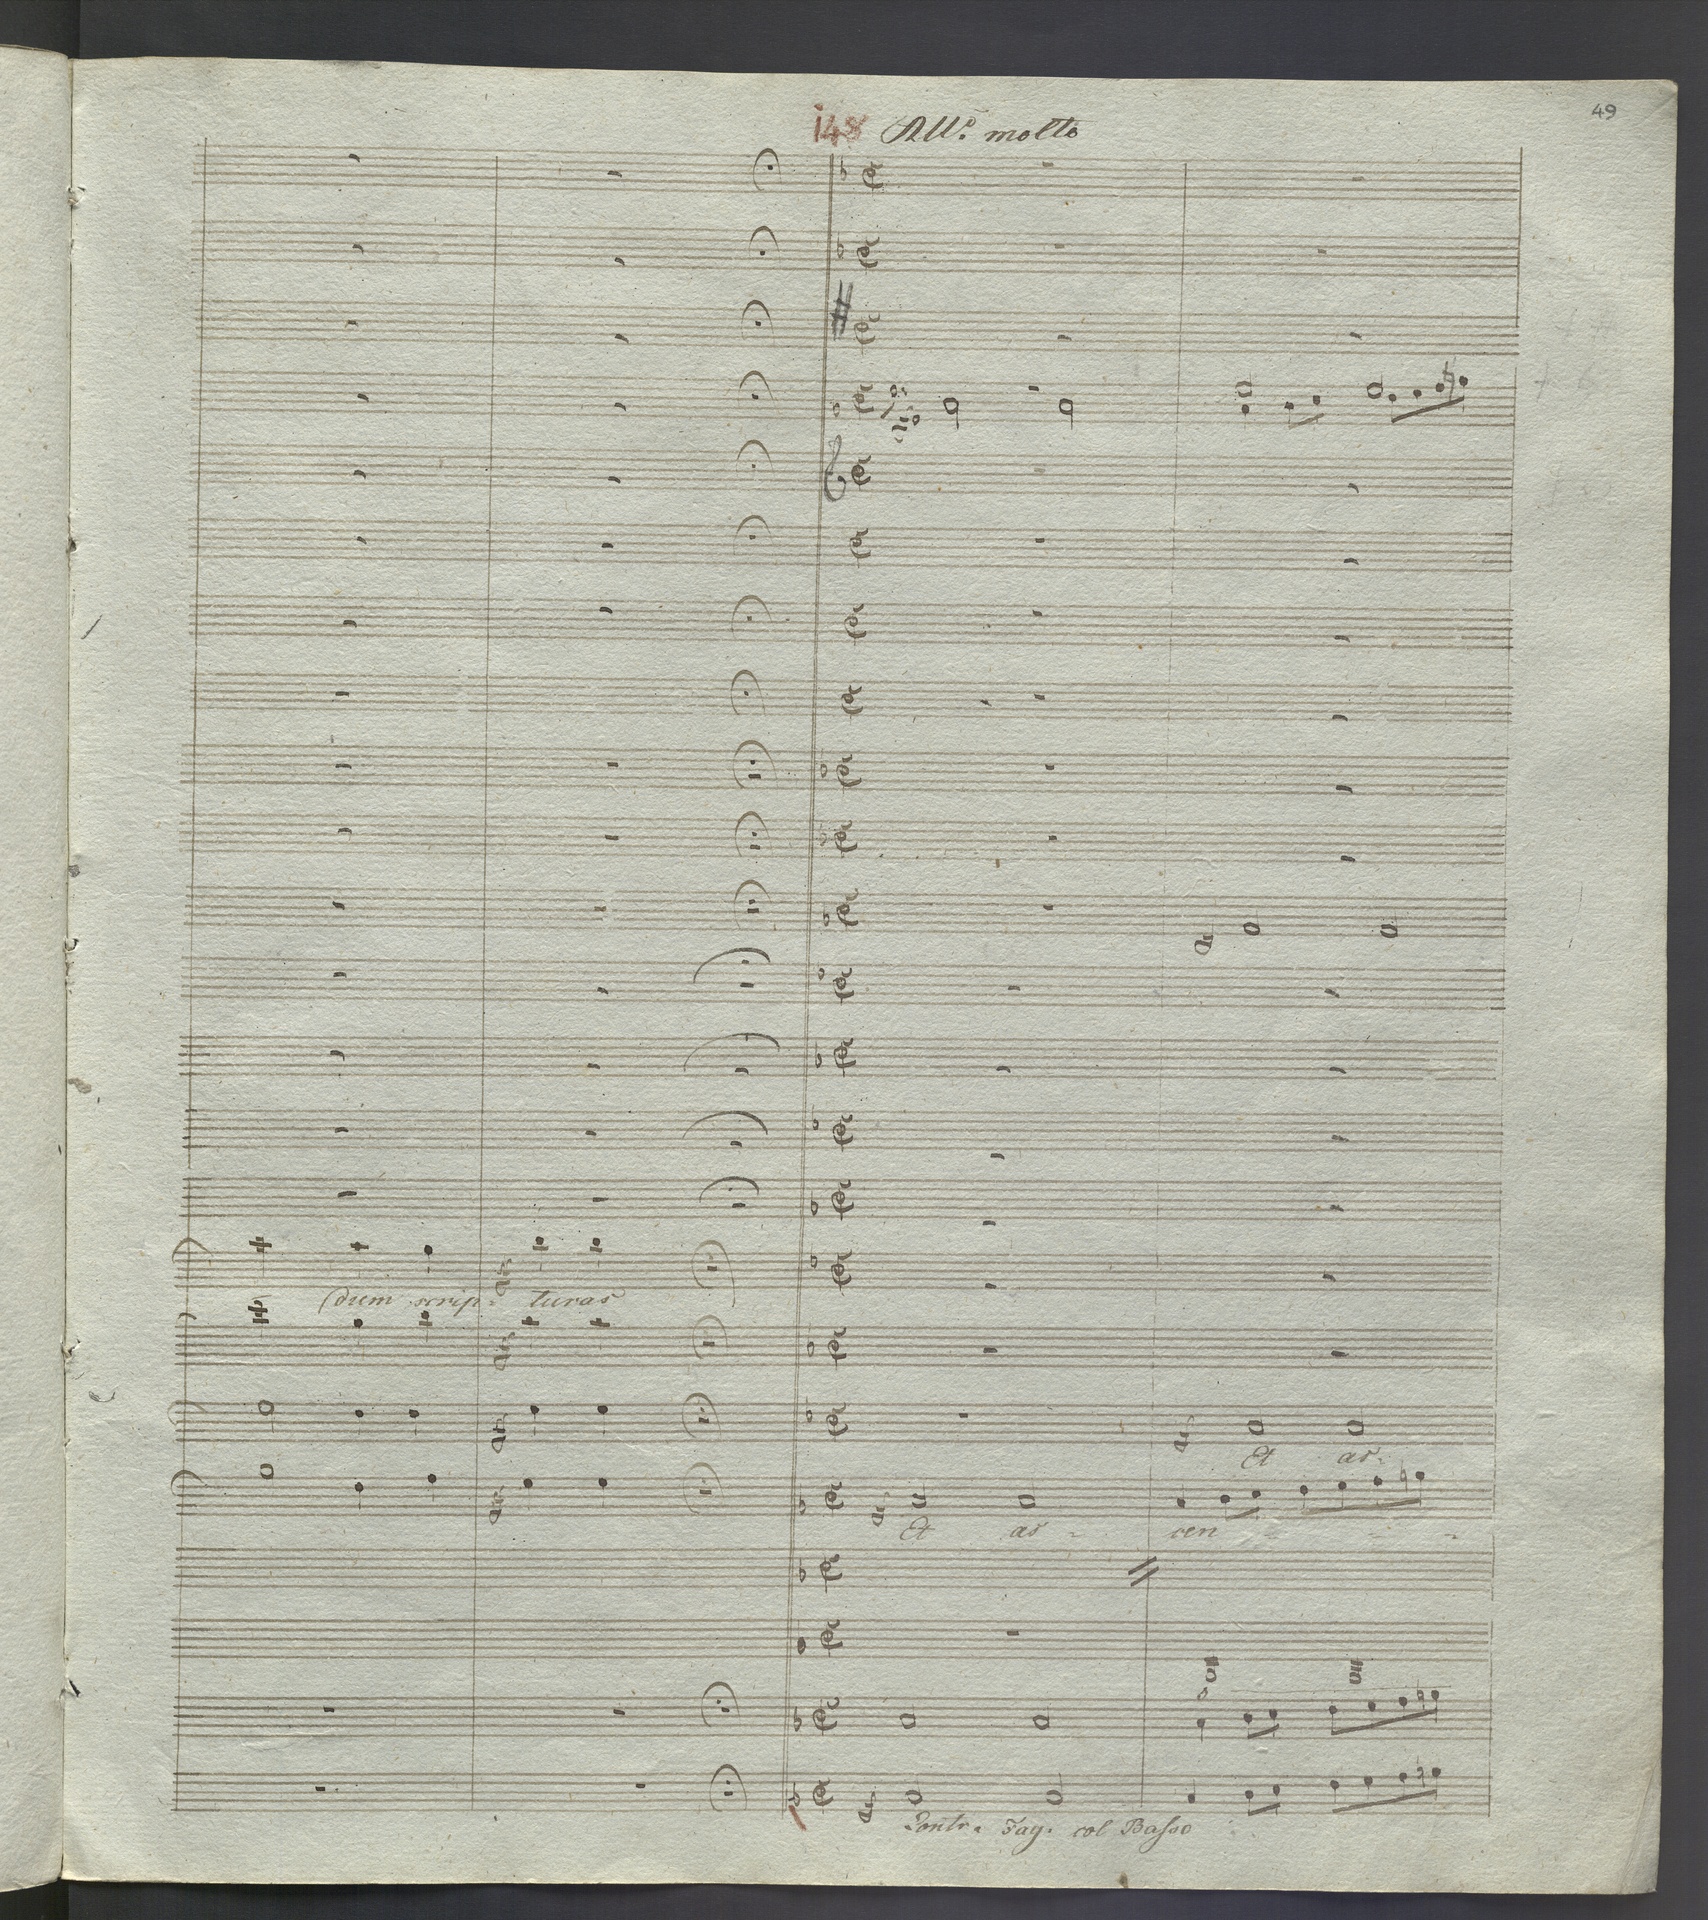 49
148 All.º molto
dum scrip- turas
Et as-
Et as- cen - - -
Contr. Fag. col Basso